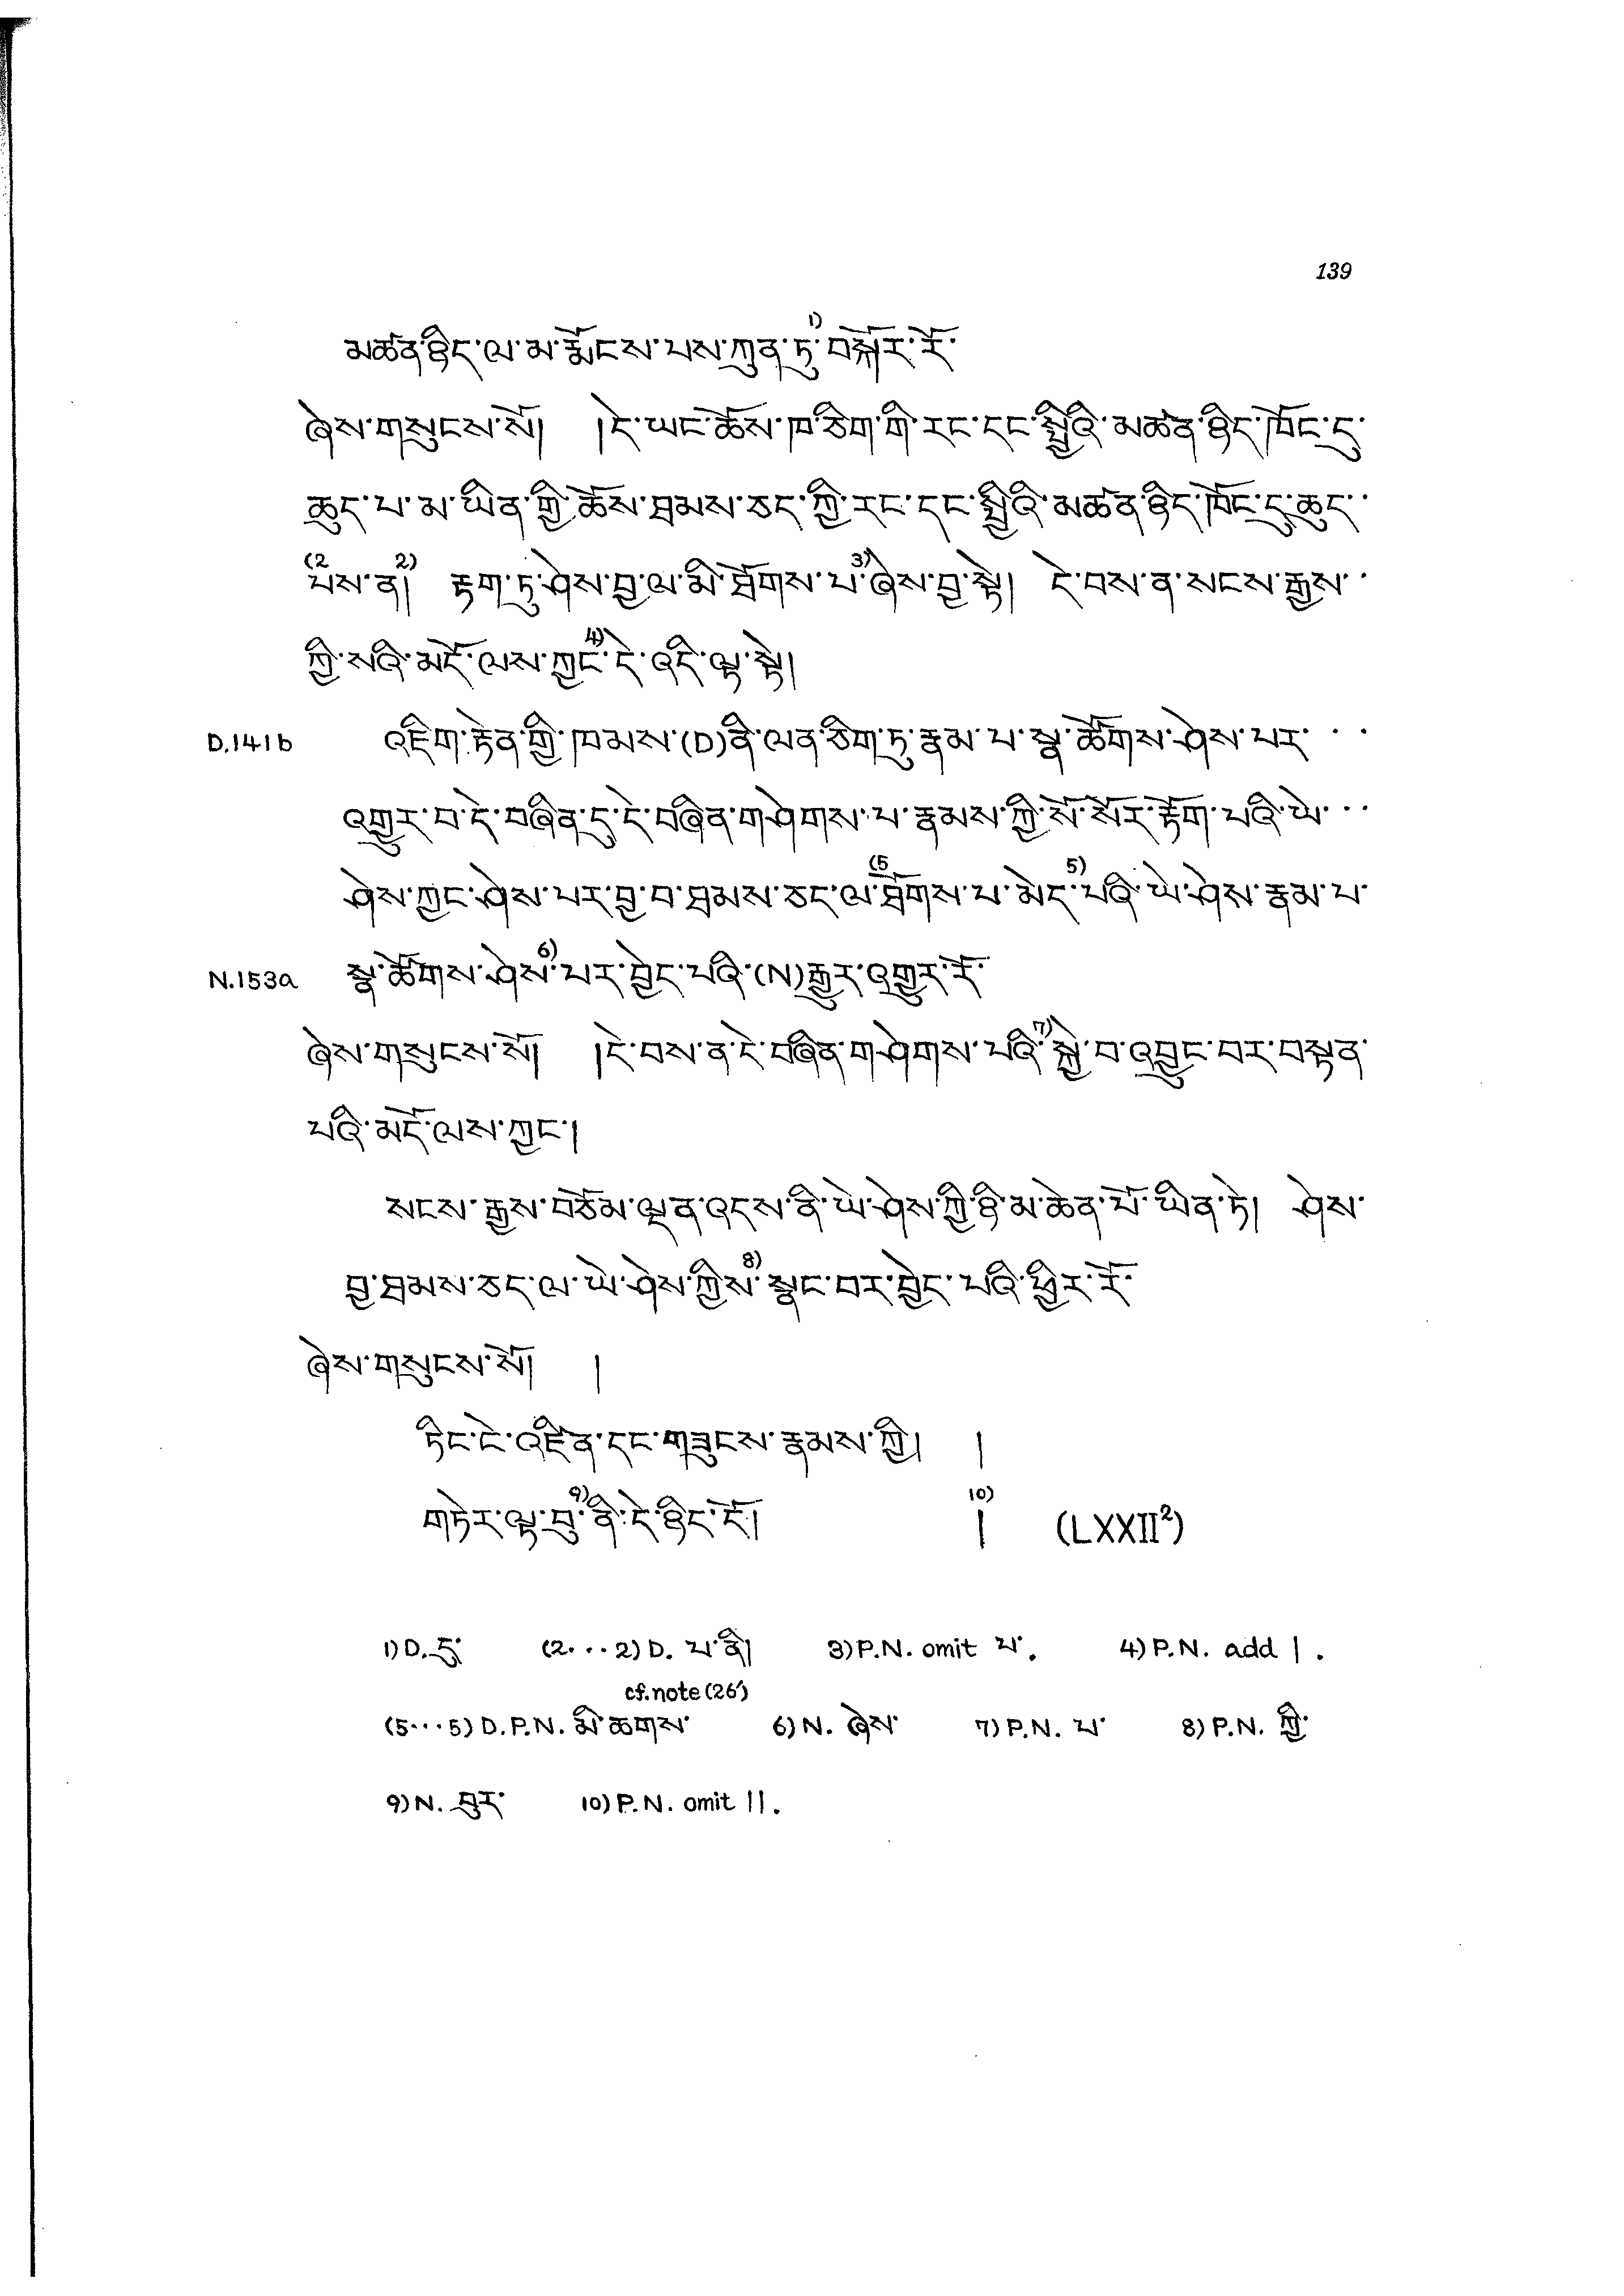 139
མཚན་ཉིད་ལ་མ་རྨོངས་པས་ཀུན་ཏུ་1)བསྐོར་རོ་
ཞེས་གསུངས་སོ། །དེ་ཡང་ཆོས་ཁ་ཅིག་གི་རང་དང་སྤྱིའི་མཚན་ཉིད་ཁོང་དུ་
ཆུད་པ་མ་ཡིན་གྱི་ཆོས་ཐམས་ཅད་ཀྱི་རང་དང་སྤྱིའི་མཚན་ཉིད་ཁོང་དུ་ཆུད་··
(2པས་ན།2) རྟག་ཏུ་ཤེས་བྱ་ལ་མི་ཐོགས་པ་3)ཞེས་བྱ་སྟེ། དེ་བས་ན་སངས་རྒྱས་··
ཀྱི་སའི་མདོ་ལས་ཀྱང་4)དེ་འདི་ལྟ་སྟེ།
D.141b འཇིག་རྟེན་གྱི་ཁམས་(D)ནི་ལན་ཅིག་ཏུ་རྣམ་པ་སྣ་ཚོགས་ཤེས་པར་···
འགྱུར་བ་དེ་བཞིན་དུ་དེ་བཞིན་གཤེགས་པ་རྣམས་ཀྱི་སོ་སོར་རྟོག་པའི་ཡེ་···
ཤེས་ཀྱང་ཤེས་པར་བྱ་བ་ཐམས་ཅད་ལ་(5ཐོགས་པ་མེད་5)པའི་ཡེ་ཤེས་རྣམ་པ་
N.153a སྣ་ཚོགས་ཤེས་6)པར་བྱེད་པའི་(N)རྒྱུར་འགྱུར་རོ་
ཞེས་གསུངས་སོ། །དེ་བས་ན་དེ་བཞིན་གཤེགས་པའི་7)སྐྱེ་བ་འབྱུང་བར་བསྟན་
པའི་མདོ་ལས་ཀྱང་།
སངས་རྒྱས་བཅོམ་ལྡན་འདས་ནི་ཡེ་ཤེས་ཀྱི་ཉི་མ་ཆེན་པོ་ཡིན་ཏེ། ཤེས་
བྱ་ཐམས་ཅད་ལ་ཡེ་ཤེས་ཀྱིས་8)སྣང་བར་བྱེད་པའི་ཕྱིར་རོ་
ཞེས་གསུངས་སོ། །
ཏིང་ངེ་འཛིན་དང་གཟུངས་རྣམས་ཀྱི། །
གཏེར་ལྟ་བུ་9)ནི་དེ་ཉིད་དོ། །10) (LXXII²)
1) D. དུ་ (2···2) D. པ་ནི། 3) P.N. omit པ་. 4) P.N. add །.
cf. note (26)
(5···5) D.P.N. མི་ཆགས་ 6) N. ཞེས་ 7) P.N. པ་ 8) P.N. ཀྱི་
9) N. བུར་ 10) P.N. omit ||.